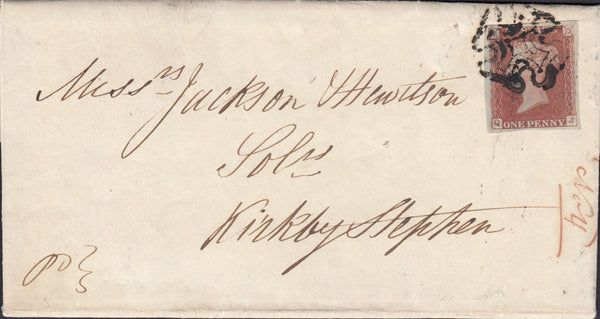 Messrs Jackson & Hewitson
Solrs
Kirkby Stephen
Q J
ONE PENNY